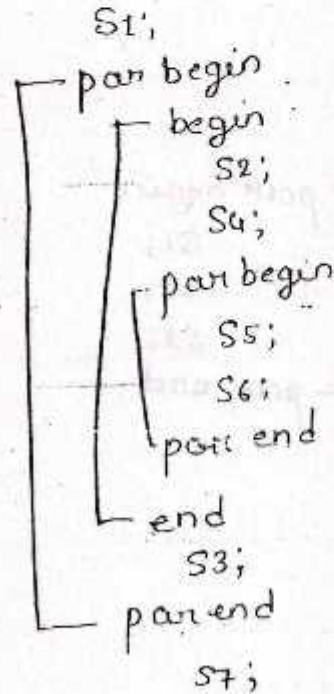 S1;
par begin
begin
S2;
S4;
par begin
S5;
S6;
par end
end
S3;
par end
S7;